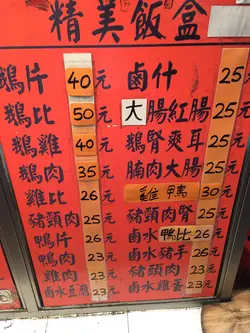 精美飯盒
鵝片 40元
鵝比 50元
鵝雞 40元
鵝肉 35元
雞比 26元
豬頸肉 25元
鴨片 26元
鴨肉 23元
雞肉 23元
鹵水豆腐 23元
鹵什 25元
大腸紅腸 25元
鵝腎爽耳 25元
腩肉大腸 25元
雞鴨 30元
豬頸肉腎 25元
鹵水鴨比 26元
鹵水豬手 26元
豬頭肉 23元
鹵水雞蛋 23元